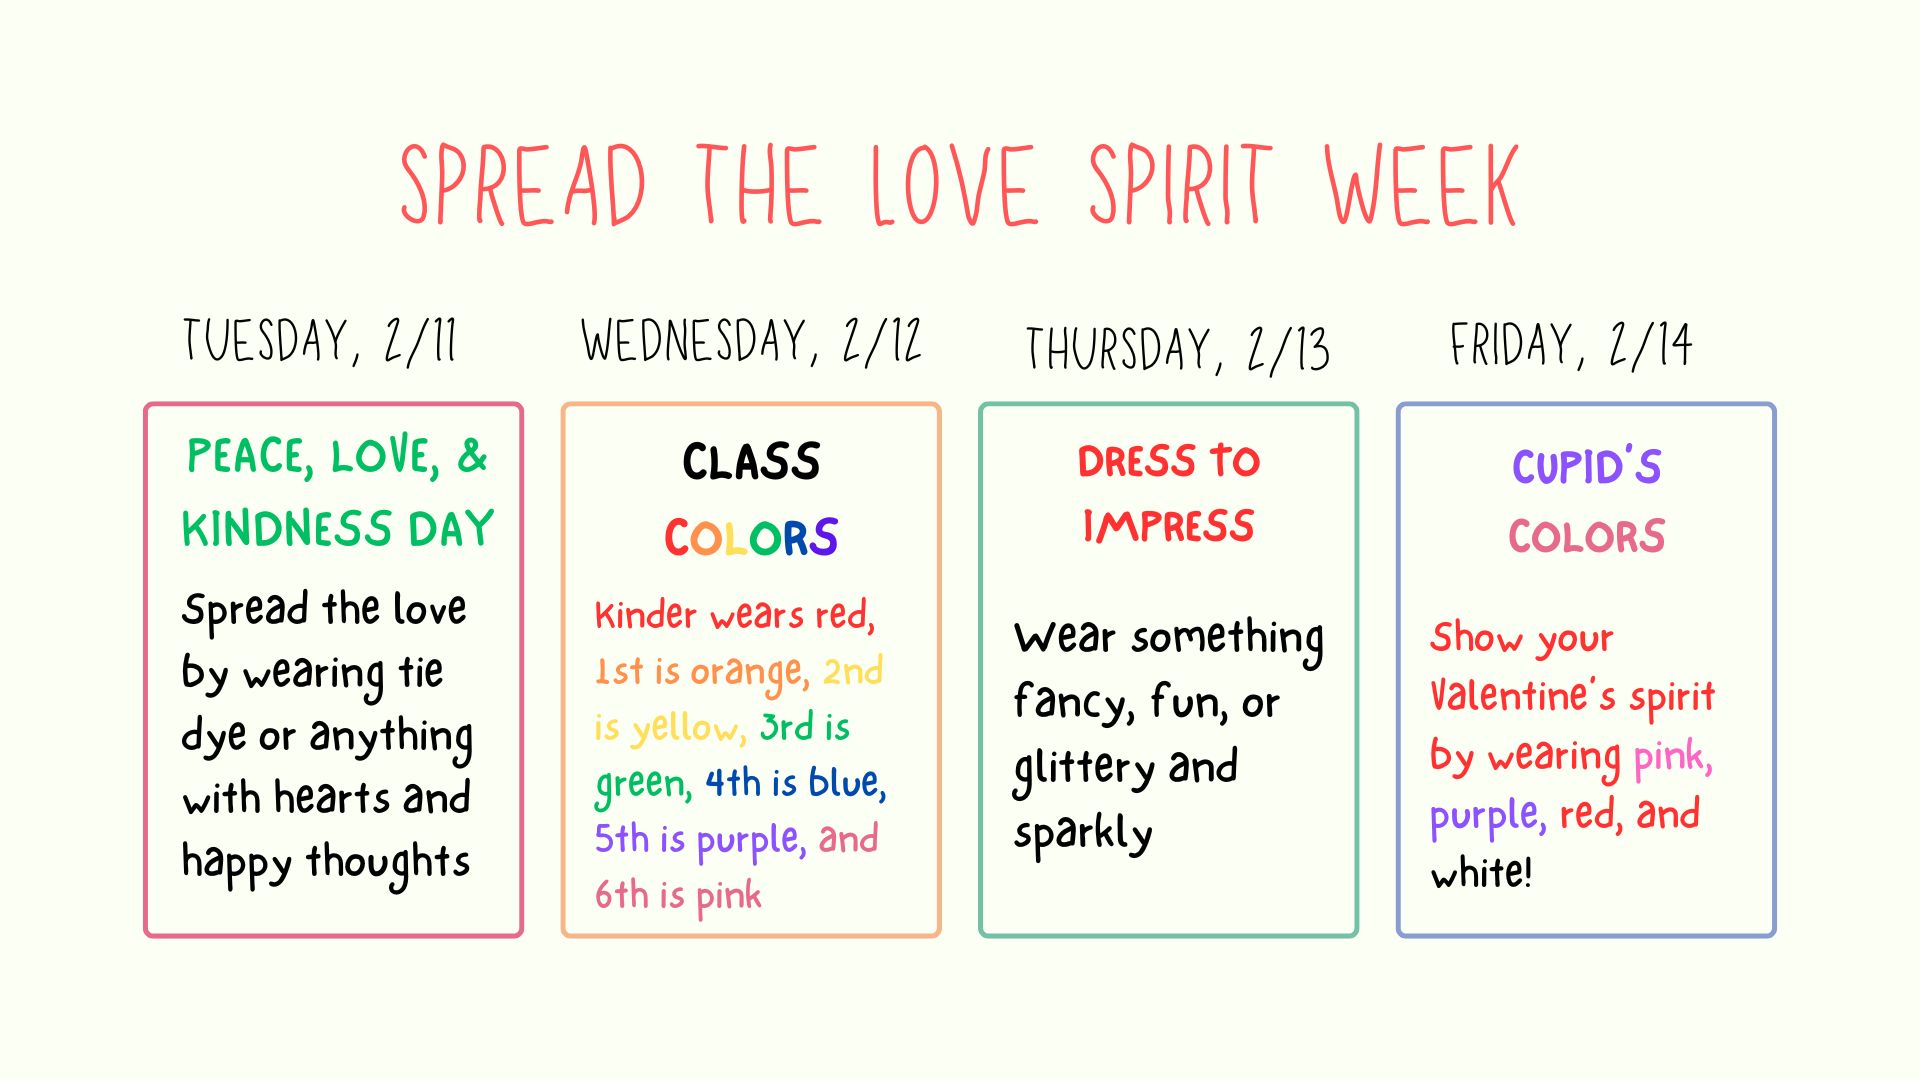 SPREAD THE LOVE SPIRIT WEEK
TUESDAY, 2/11
PEACE, LOVE, &
KINDNESS DAY
Spread the love
by wearing tie
dye or anything
with hearts and
happy thoughts
WEDNESDAY, 2/12
CLASS
COLORS
Kinder wears red,
1st is orange, 2nd
is yellow, 3rd is
green, 4th is blue,
5th is purple, and
6th is pink
THURSDAY, 2/13
DRESS TO
IMPRESS
Wear something
fancy, fun, or
glittery and
sparkly
FRIDAY, 2/14
CUPID'S
COLORS
Show your
Valentine's spirit
by wearing pink,
purple, red, and
white!